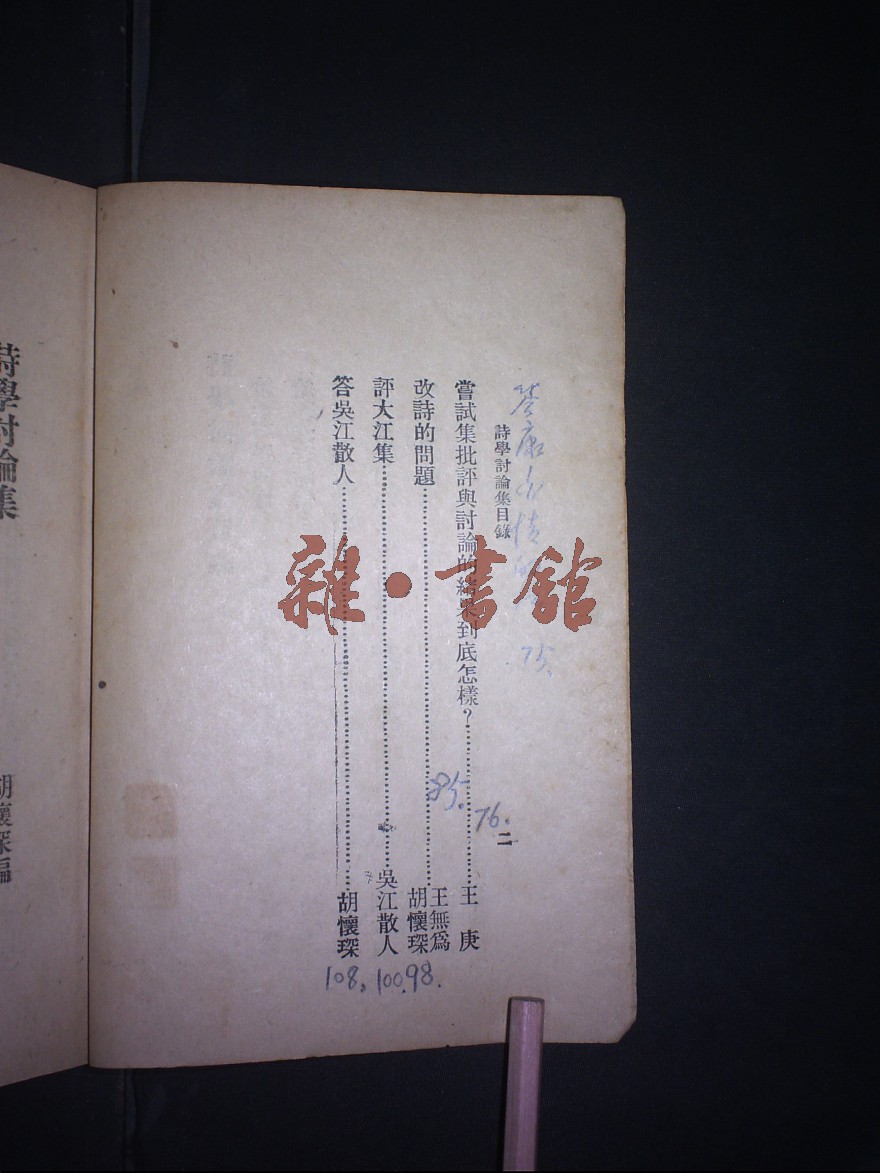 詩學討論集目錄
二
嘗試集批評與討論的結果到底怎樣？……王庚
76.
改詩的問題……王無爲 胡懷琛
85.
98.
評大江集……吳江散人
100.
答吳江散人……胡懷琛
108.
75.
雜·書館
詩學討論集
胡懷琛編